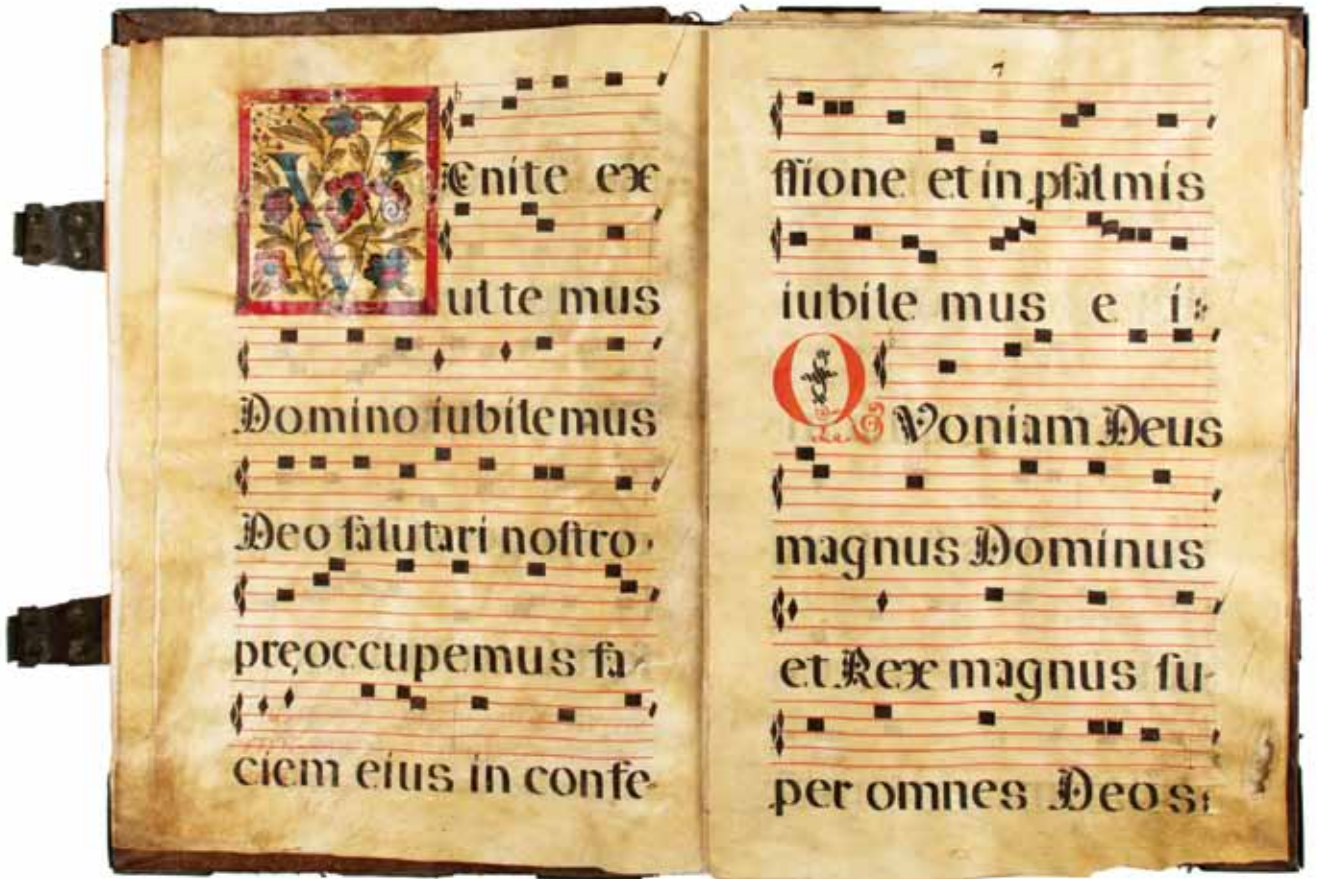 VEnite ex
ulte mus
Domino iubilemus
Deo ſalutari noſtro.
pręoccupemus fa-
ciem eius in confe-
7
ſſione et in pſalmis
iubile mus e i:
QVoniam Deus
magnus Dominus
et Rex magnus ſu-
per omnes Deos: